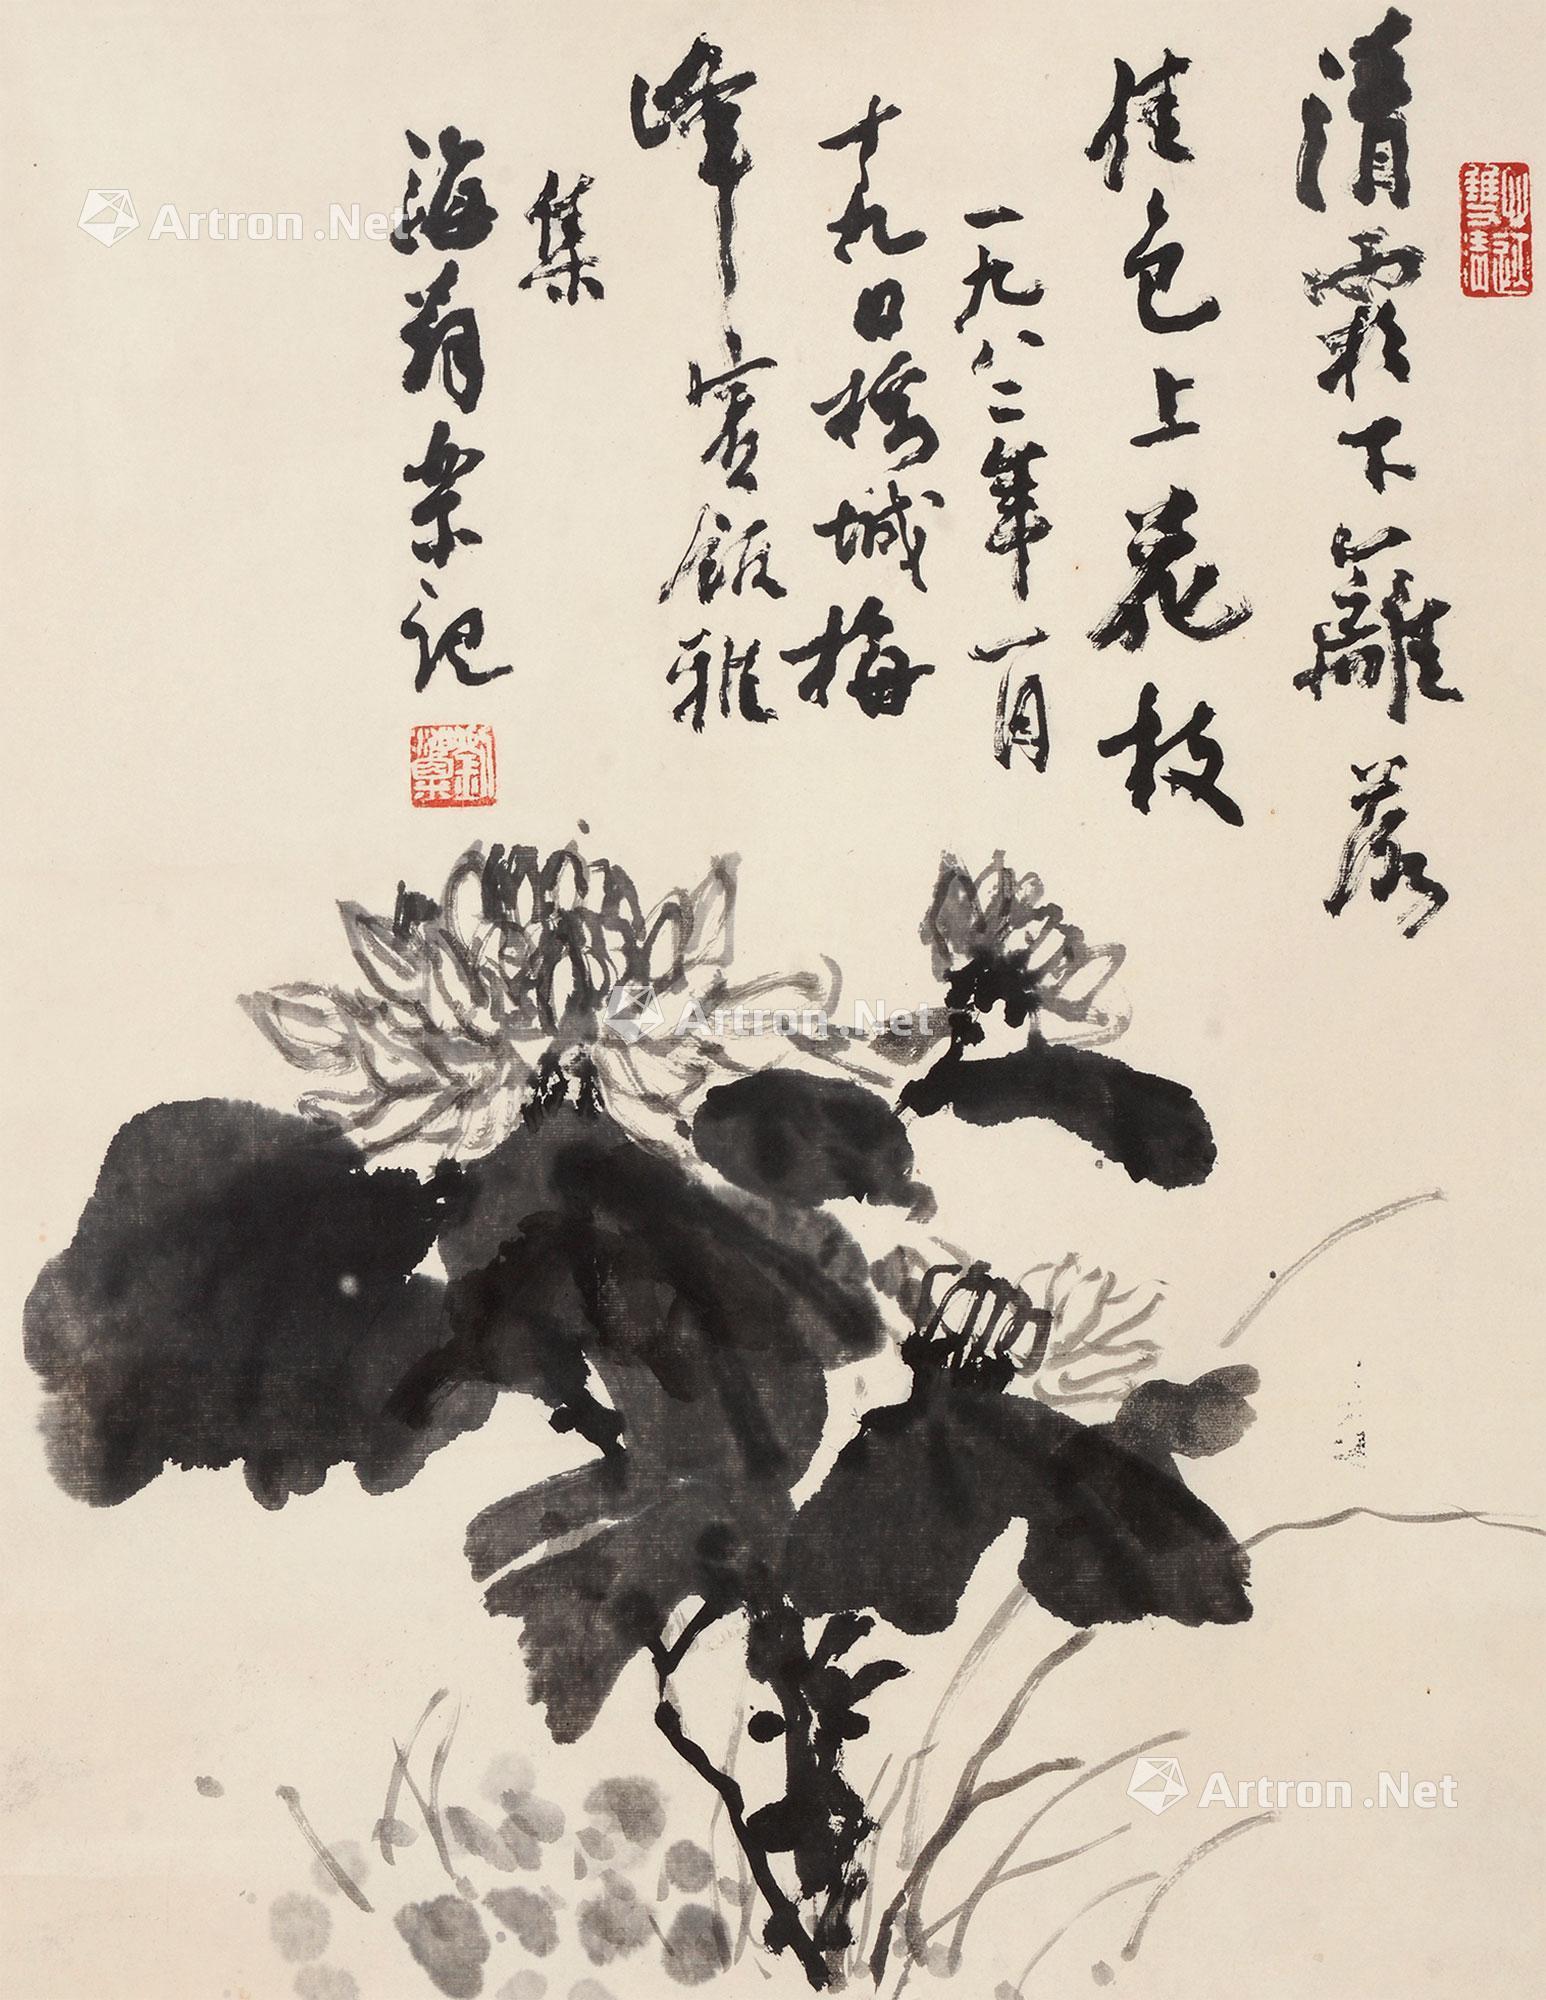 清霜下籬落
佳色上花枝
一九八二年一月
十九日橋城梅
峰賓館雅
集
海翁栗記
劉海粟
Artron.Net
Artron.Net
Artron.Net